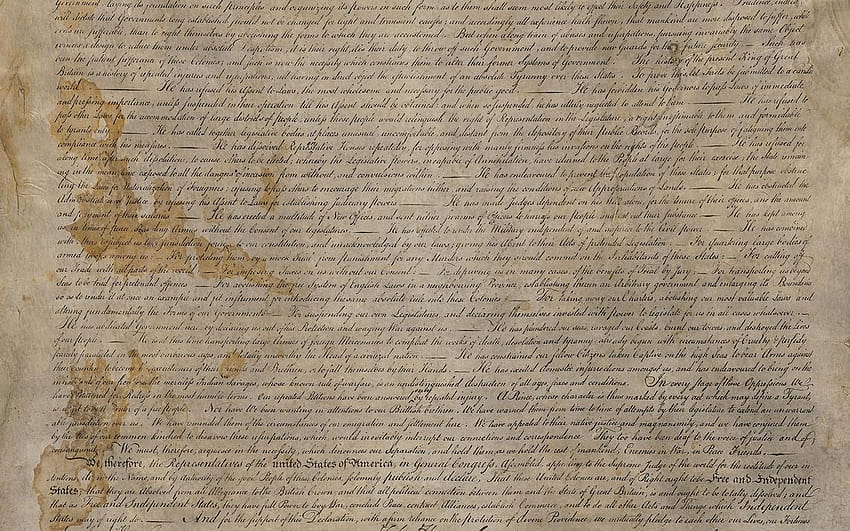 laying its foundation on such principles and organizing its powers in such form, as to them shall seem most likely to effect their Safety and Happiness. Prudence, indeed,
will dictate that Governments long established should not be changed for light and transient causes; and accordingly all experience hath shewn, that mankind are more disposed to suffer, while
evils are sufferable, than to right themselves by abolishing the forms to which they are accustomed. But when a long train of abuses and usurpations, pursuing invariably the same Object
evinces a design to reduce them under absolute Despotism, it is their right, it is their duty, to throw off such Government, and to provide new Guards for their future security. — Such has
been the patient sufferance of these Colonies; and such is now the necessity which constrains them to alter their former Systems of Government. The history of the present King of Great
Britain is a history of repeated injuries and usurpations, all having in direct object the establishment of an absolute Tyranny over these States. To prove this, let Facts be submitted to a candid
world. — He has refused his Assent to Laws, the most wholesome and necessary for the public good. — He has forbidden his Governors to pass Laws of immediate
and pressing importance, unless suspended in their operation till his Assent should be obtained; and when so suspended, he has utterly neglected to attend to them. — He has refused to
pass other Laws for the accommodation of large districts of people, unless those people would relinquish the right of Representation in the Legislature, a right inestimable to them and formidable
to tyrants only. — He has called together legislative bodies at places unusual, uncomfortable, and distant from the depository of their public Records, for the sole purpose of fatiguing them into
compliance with his measures. — He has dissolved Representative Houses repeatedly, for opposing with manly firmness his invasions on the rights of the people. — He has refused for
a long time, after such dissolutions, to cause others to be elected; whereby the Legislative powers, incapable of Annihilation, have returned to the People at large for their exercise; the State remain-
ing in the mean time exposed to all the dangers of invasion from without, and convulsions within. — He has endeavoured to prevent the population of these States; for that purpose obstruc-
ting the Laws for Naturalization of Foreigners; refusing to pass others to encourage their migrations hither, and raising the conditions of new Appropriations of Lands. — He has obstructed the
Administration of Justice, by refusing his Assent to Laws for establishing Judiciary powers. — He has made Judges dependent on his Will alone, for the tenure of their offices, and the amount
and payment of their salaries. — He has erected a multitude of New Offices, and sent hither swarms of Officers to harrass our people, and eat out their substance. — He has kept among
us, in times of peace, Standing Armies without the Consent of our legislatures. — He has affected to render the Military independent of and superior to the Civil power. — He has combined
with others to subject us to a jurisdiction foreign to our constitution, and unacknowledged by our laws; giving his Assent to their Acts of pretended Legislation: — For Quartering large bodies of
armed troops among us: — For protecting them, by a mock Trial, from punishment for any Murders which they should commit on the Inhabitants of these States: — For cutting off
our Trade with all parts of the world: — For imposing Taxes on us without our Consent: — For depriving us in many cases, of the benefits of Trial by Jury: — For transporting us beyond
Seas to be tried for pretended offences — For abolishing the free System of English Laws in a neighbouring Province, establishing therein an Arbitrary government, and enlarging its Boundaries
so as to render it at once an example and fit instrument for introducing the same absolute rule into these Colonies: — For taking away our Charters, abolishing our most valuable Laws, and
altering fundamentally the Forms of our Governments: — For suspending our own Legislatures, and declaring themselves invested with power to legislate for us in all cases whatsoever. —
He has abdicated Government here, by declaring us out of his Protection and waging War against us. — He has plundered our seas, ravaged our Coasts, burnt our towns, and destroyed the Lives
of our people. — He is at this time transporting large Armies of foreign Mercenaries to compleat the works of death, desolation and tyranny, already begun with circumstances of Cruelty & perfidy
scarcely paralleled in the most barbarous ages, and totally unworthy the Head of a civilized nation. — He has constrained our fellow Citizens taken Captive on the high Seas to bear Arms against
their Country, to become the executioners of their friends and Brethren, or to fall themselves by their Hands. — He has excited domestic insurrections amongst us, and has endeavoured to bring on the
inhabitants of our frontiers, the merciless Indian Savages, whose known rule of warfare, is an undistinguished destruction of all ages, sexes and conditions. In every stage of these Oppressions We
have Petitioned for Redress in the most humble terms: Our repeated Petitions have been answered only by repeated injury. A Prince, whose character is thus marked by every act which may define a Tyrant,
is unfit to be the ruler of a free people. Nor have We been wanting in attentions to our Brittish brethren. We have warned them from time to time of attempts by their legislature to extend an unwarrant-
able jurisdiction over us. We have reminded them of the circumstances of our emigration and settlement here. We have appealed to their native justice and magnanimity, and we have conjured them
by the ties of our common kindred to disavow these usurpations, which, would inevitably interrupt our connections and correspondence. They too have been deaf to the voice of justice and of
consanguinity. We must, therefore, acquiesce in the necessity, which denounces our Separation, and hold them, as we hold the rest of mankind, Enemies in War, in Peace Friends. —
We, therefore, the Representatives of the united States of America, in General Congress, Assembled, appealing to the Supreme Judge of the world for the rectitude of our in-
tentions, do, in the Name, and by Authority of the good People of these Colonies, solemnly publish and declare, That these United Colonies are, and of Right ought to be Free and Independent
States; that they are Absolved from all Allegiance to the British Crown, and that all political connection between them and the State of Great Britain, is and ought to be totally dissolved; and
that as Free and Independent States, they have full Power to levy War, conclude Peace, contract Alliances, establish Commerce, and to do all other Acts and Things which Independent
States may of right do. — And for the support of this Declaration, with a firm reliance on the protection of divine Providence, we mutually pledge to each other our Lives, our Fortunes